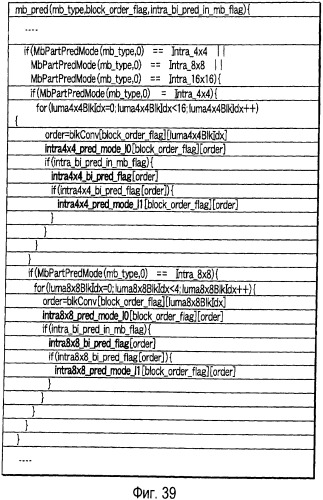 mb_pred(mb_type,block_order_flag,intra_bi_pred_in_mb_flag){
----
if(MbPartPredMode(mb_type,0) == Intra_4x4 ||
MbPartPredMode(mb_type,0) == Intra_8x8 ||
MbPartPredMode(mb_type,0) == Intra_16x16){
if(MbPartPredMode(mb_type,0) = Intra_4x4){
for(luma4x4BlkIdx=0;luma4x4BlkIdx<16;luma4x4BlkIdx++)
{
order=blkConv[block_order_flag][luma4x4BlkIdx]
intra4x4_pred_mode_l0[block_order_flag][order]
if(intra_bi_pred_in_mb_flag){
intra4x4_bi_pred_flag[order]
if(intra4x4_bi_pred_flag[order]){
intra4x4_pred_mode_l1[block_order_flag][order]
}
}
}
}
if(MbPartPredMode(mb_type,0) == Intra_8x8){
for(luma8x8BlkIdx=0;luma8x8BlkIdx<4;luma8x8BlkIdx++){
order=blkConv[block_order_flag][luma8x8BlkIdx]
intra8x8_pred_mode_l0[block_order_flag][order]
if(intra_bi_pred_in_mb_flag){
intra8x8_bi_pred_flag[order]
if(intra8x8_bi_pred_flag[order]){
intra8x8_pred_mode_l1[block_order_flag][order]
}
}
}
}
}
----
Фиг. 39